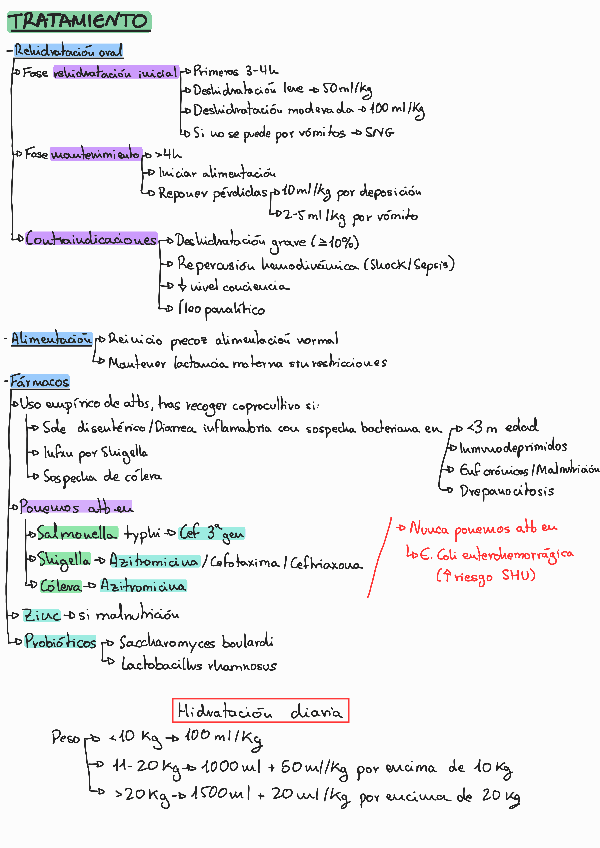 TRATAMIENTO
- Rehidratación oral
Fase rehidratación inicial → Primeros 3-4h
→ Deshidratación leve → 50ml/Kg
→ Deshidratación moderada → 100ml/Kg
→ Si no se puede por vómitos → SNG
Fase mantenimiento → >4h
→ Iniciar alimentación
→ Reponer pérdidas → 10ml/kg por deposición
→ 2-5 ml/kg por vómito
→ Contraindicaciones → Deshidratación grave (≥10%)
→ Repercusión hemodinámica (Shock/Sepsis)
→ ↓ nivel conciencia
→ Íleo paralítico
- Alimentación → Reinicio precoz alimentación normal
→ Mantener lactancia materna sin restricciones
- Fármacos
→ Uso empírico de atbs, tras recoger coprocultivo si:
→ Sde disentérico/Diarrea inflamatoria con sospecha bacteriana en → <3 m edad
→ Inmunodeprimidos
→ Infxn por Shigella
→ Enf crónicas/Malnutrición
→ Sospecha de cólera
→ Drepanocitosis
→ Ponemos atb en
→ Salmonella typhi → Cef 3ª gen
→ Shigella → Azitromicina/Cefotaxima/Ceftriaxona
→ Cólera → Azitromicina
→ Nunca ponemos atb en
→ E. Coli enterohemorrágica
(↑ riesgo SHU)
→ Zinc → si malnutrición
→ Probióticos → Saccharomyces boulardi
→ Lactobacillus rhamnosus
Hidratación diaria
Peso → <10 Kg → 100 ml/Kg
→ 11-20 Kg → 1000ml + 50ml/Kg por encima de 10Kg
→ >20Kg → 1500ml + 20ml/Kg por encima de 20Kg